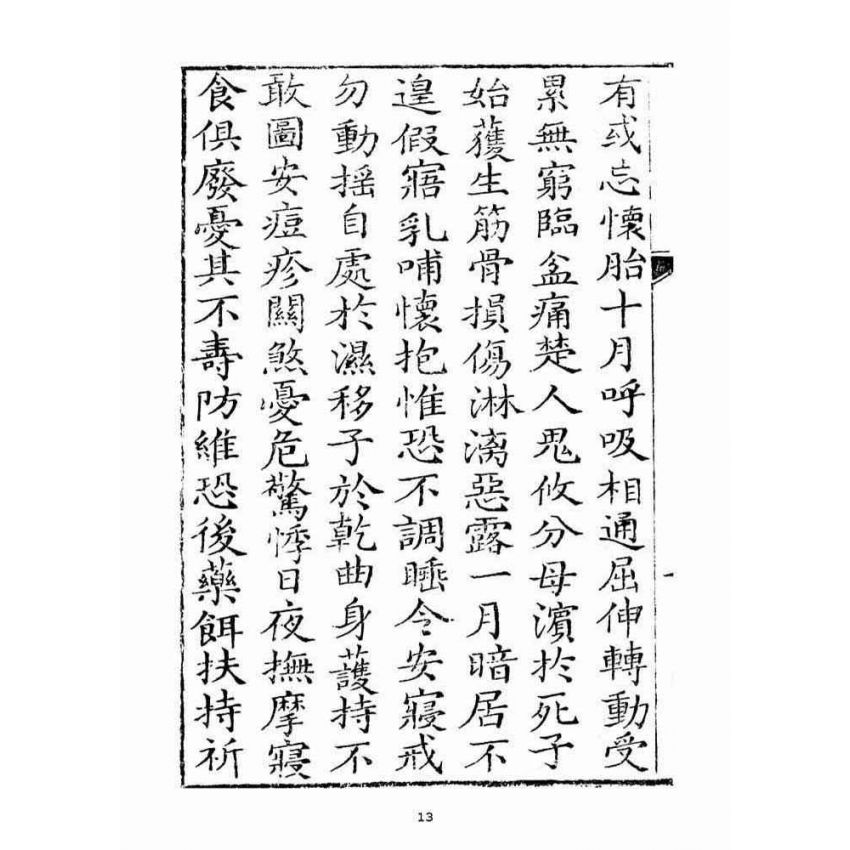 有或忘懷胎十月呼吸相通屈伸轉動受
累無窮臨盆痛楚人鬼攸分母濱於死子
始獲生筋骨損傷淋漓惡露一月暗居不
遑假寤乳哺懷抱惟恐不調睡令安寢戒
勿動搖自處於濕移子於乾曲身護持不
敢圖安痘疹關煞憂危驚悸日夜撫摩寢
食俱廢憂其不壽防維恐後藥餌扶持祈
13